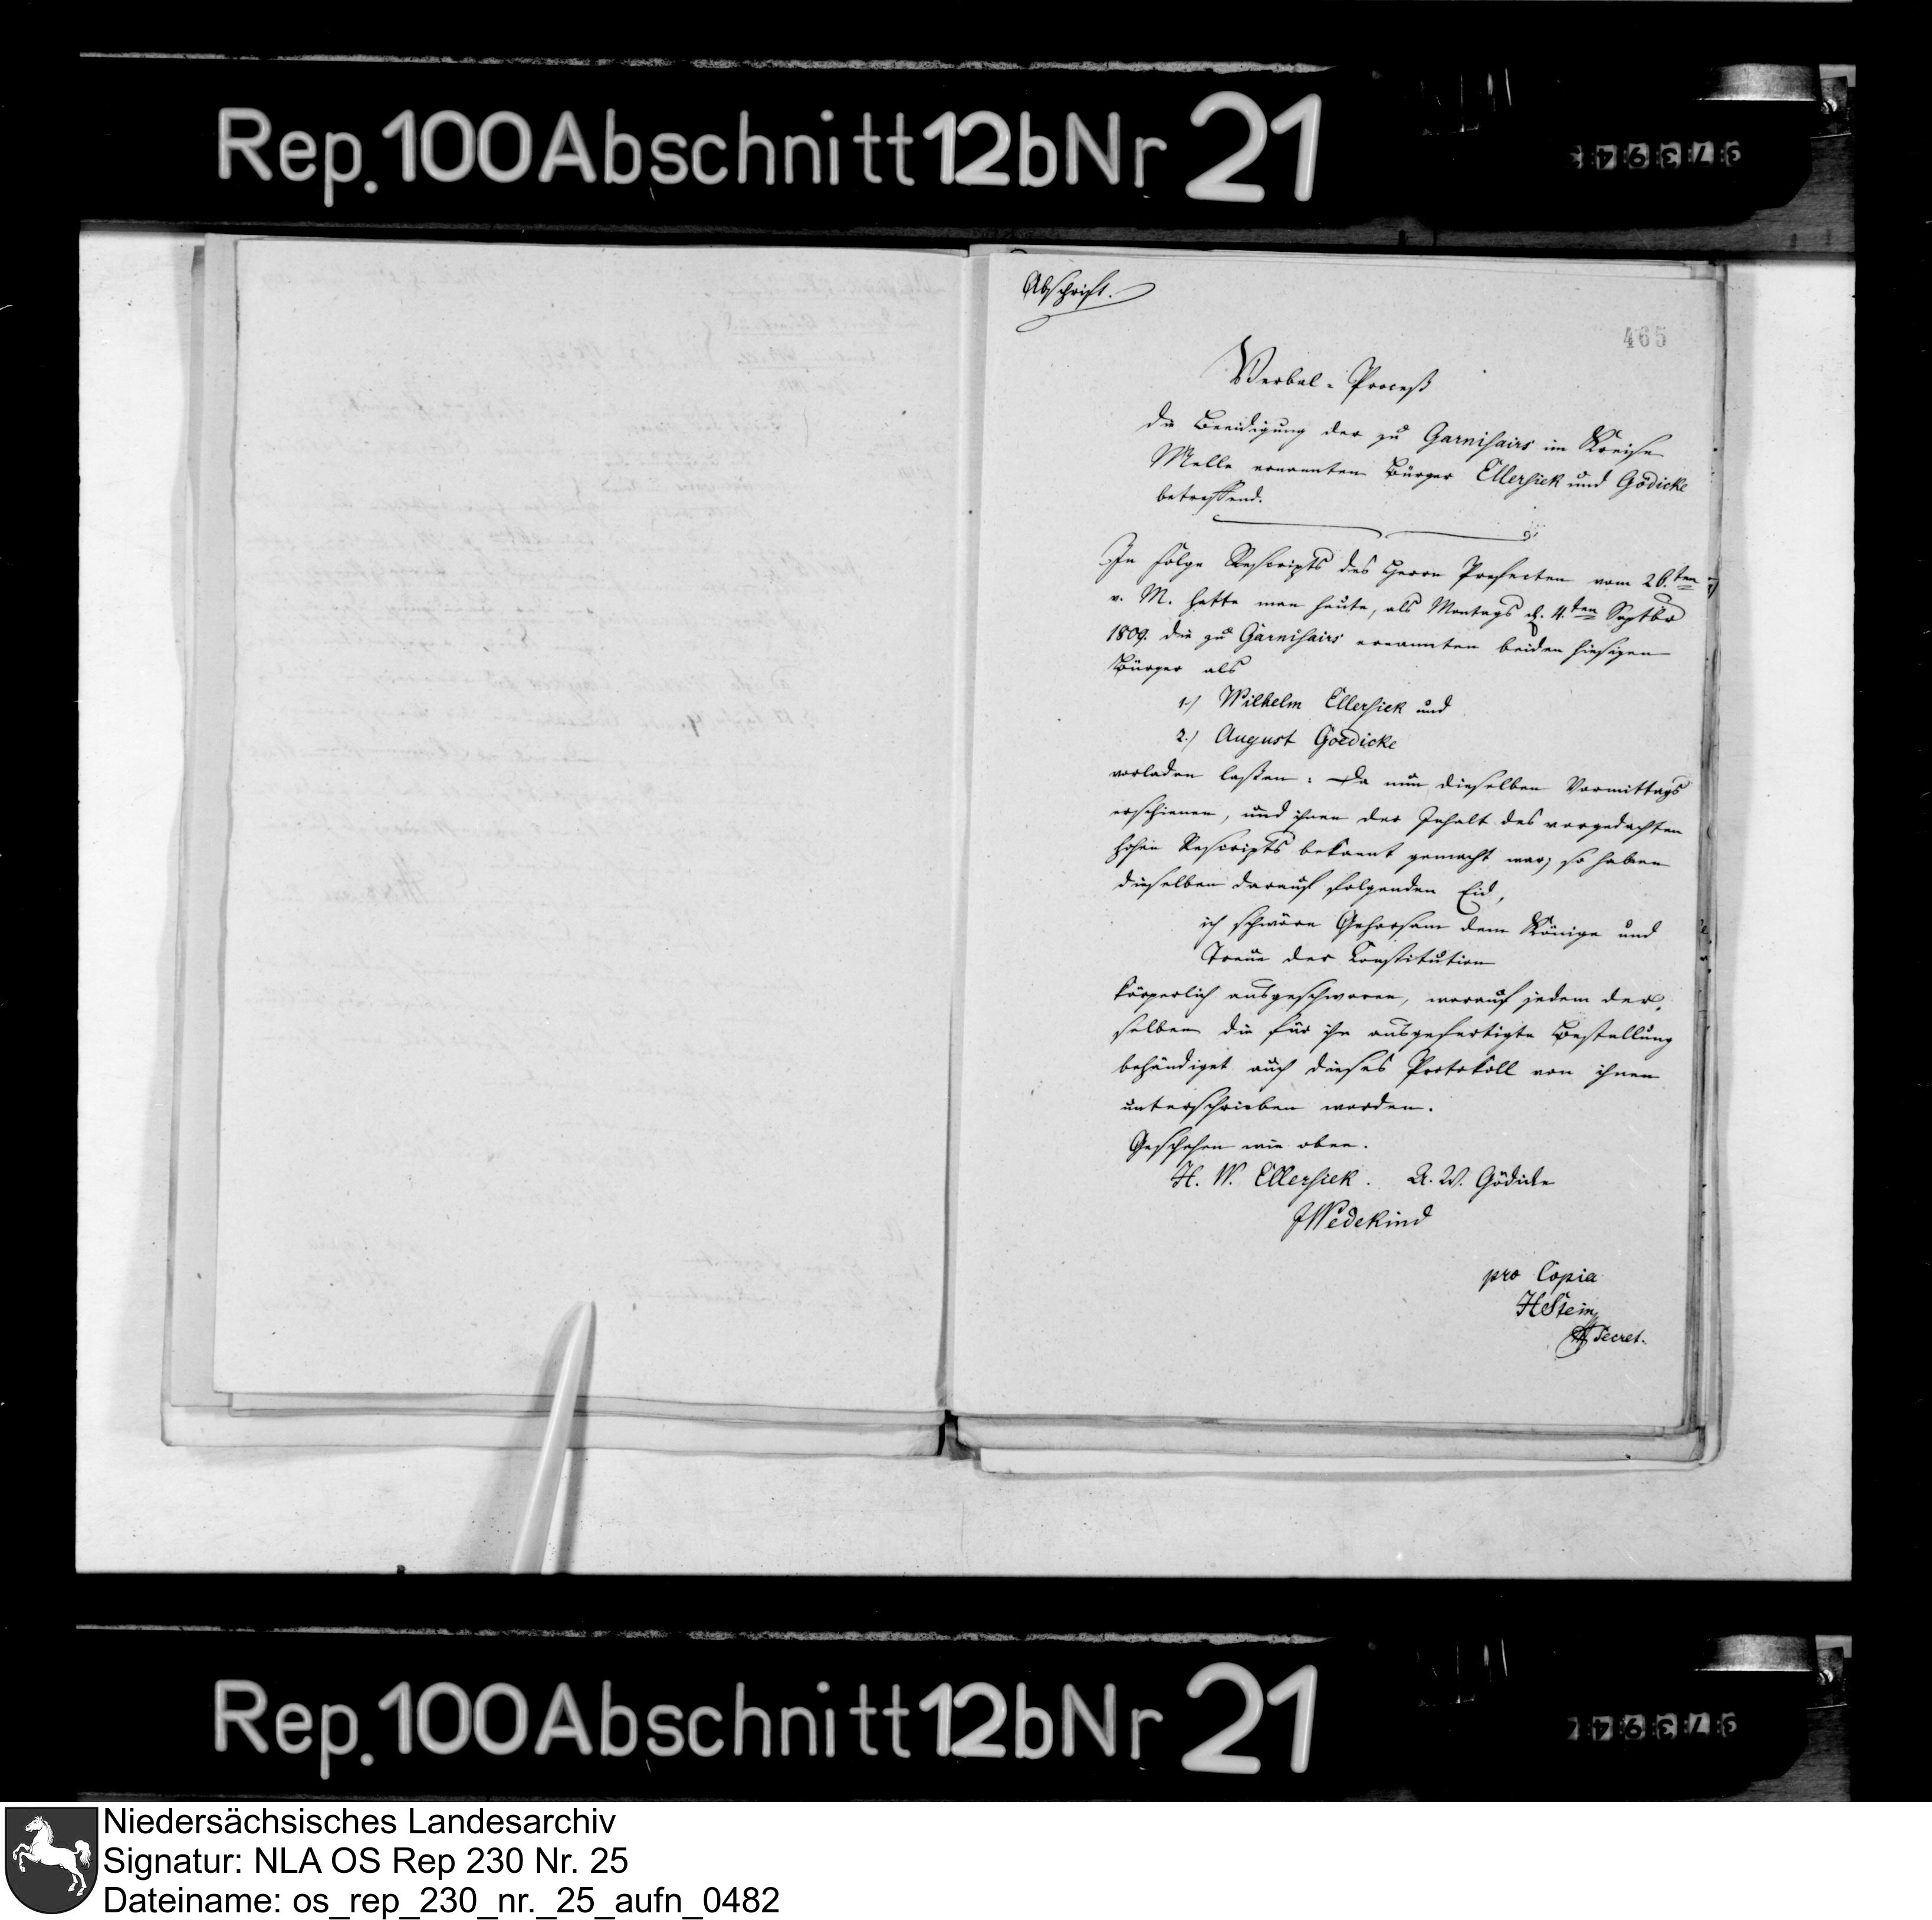 Rep. 100 Abschnitt 12b Nr 21
Abschrift.
465
Verbal-Proceß
die Beeidigung der zu Garnisairs im Kreise
Melle ernannten Bürger Ellersiek und Gödicke
betreffend.
In Folge Rescripts des Herrn Prefecten vom 26.ten
v. M. hatte man heute, als Montags d. 4.ten Septbr
1809. die zu Garnisairs ernannten beiden hiesigen
Bürger als
1.) Wilhelm Ellersiek und
2.) August Goedicke
vorladen laßen. Da nun dieselben Vormittags
erschienen, und ihnen der Inhalt des vorgedachten
hohen Rescripts bekannt gemacht war; so haben
dieselben darauf folgenden Eid,
ich schwöre Gehorsam dem Könige und
Treue der Constitution
körperlich ausgeschworen, worauf jedem der-
selben die für ihn ausgefertigte Bestallung
behändiget auch dieses Protokoll von ihnen
unterschrieben worden.
Geschehen wie oben.
H. W. Ellersiek. A. W. Gödicke
Wedekind
pro Copia
HStein
Secret.
Rep. 100 Abschnitt 12b Nr 21
Niedersächsisches Landesarchiv
Signatur: NLA OS Rep 230 Nr. 25
Dateiname: os_rep_230_nr._25_aufn_0482